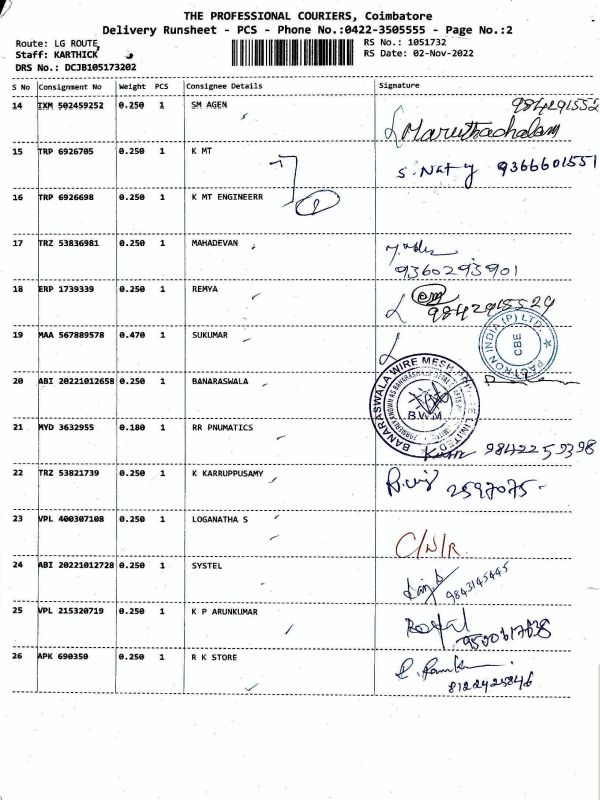 THE PROFESSIONAL COURIERS, Coimbatore
Delivery Runsheet - PCS - Phone No.:0422-3505555 - Page No.:2
Route: LG ROUTE, RS No.: 1051732
Staff: KARTHICK RS Date: 02-Nov-2022
DRS No.: DCJB105173202
S No Consignment No Weight PCS Consignee Details Signature
14 IXM 502459252 0.250 1 SM AGEN
Maruthachalam
15 TRP 6926705 0.250 1 K MT
9366601551
16 TRP 6926698 0.250 1 K MT ENGINEERR
17 TRZ 53836981 0.250 1 MAHADEVAN
9360293901
18 ERP 1739339 0.250 1 REMYA
19 MAA 567889578 0.470 1 SUKUMAR
INDIA (P) LTD.
CBE
20 ABI 20221012658 0.250 1 BANARASWALA
BANARASWALA WIRE MESH PRIVATE LIMITED
B.W.M
21 MYD 3632955 0.180 1 RR PNUMATICS
9842259398
22 TRZ 53821739 0.250 1 K KARRUPPUSAMY
2597075
23 VPL 400307108 0.250 1 LOGANATHA S
C/N/R
24 ABI 20221012728 0.250 1 SYSTEL
9843145445
25 VPL 215320719 0.250 1 K P ARUNKUMAR
26 APK 690350 0.250 1 R K STORE
8122425846